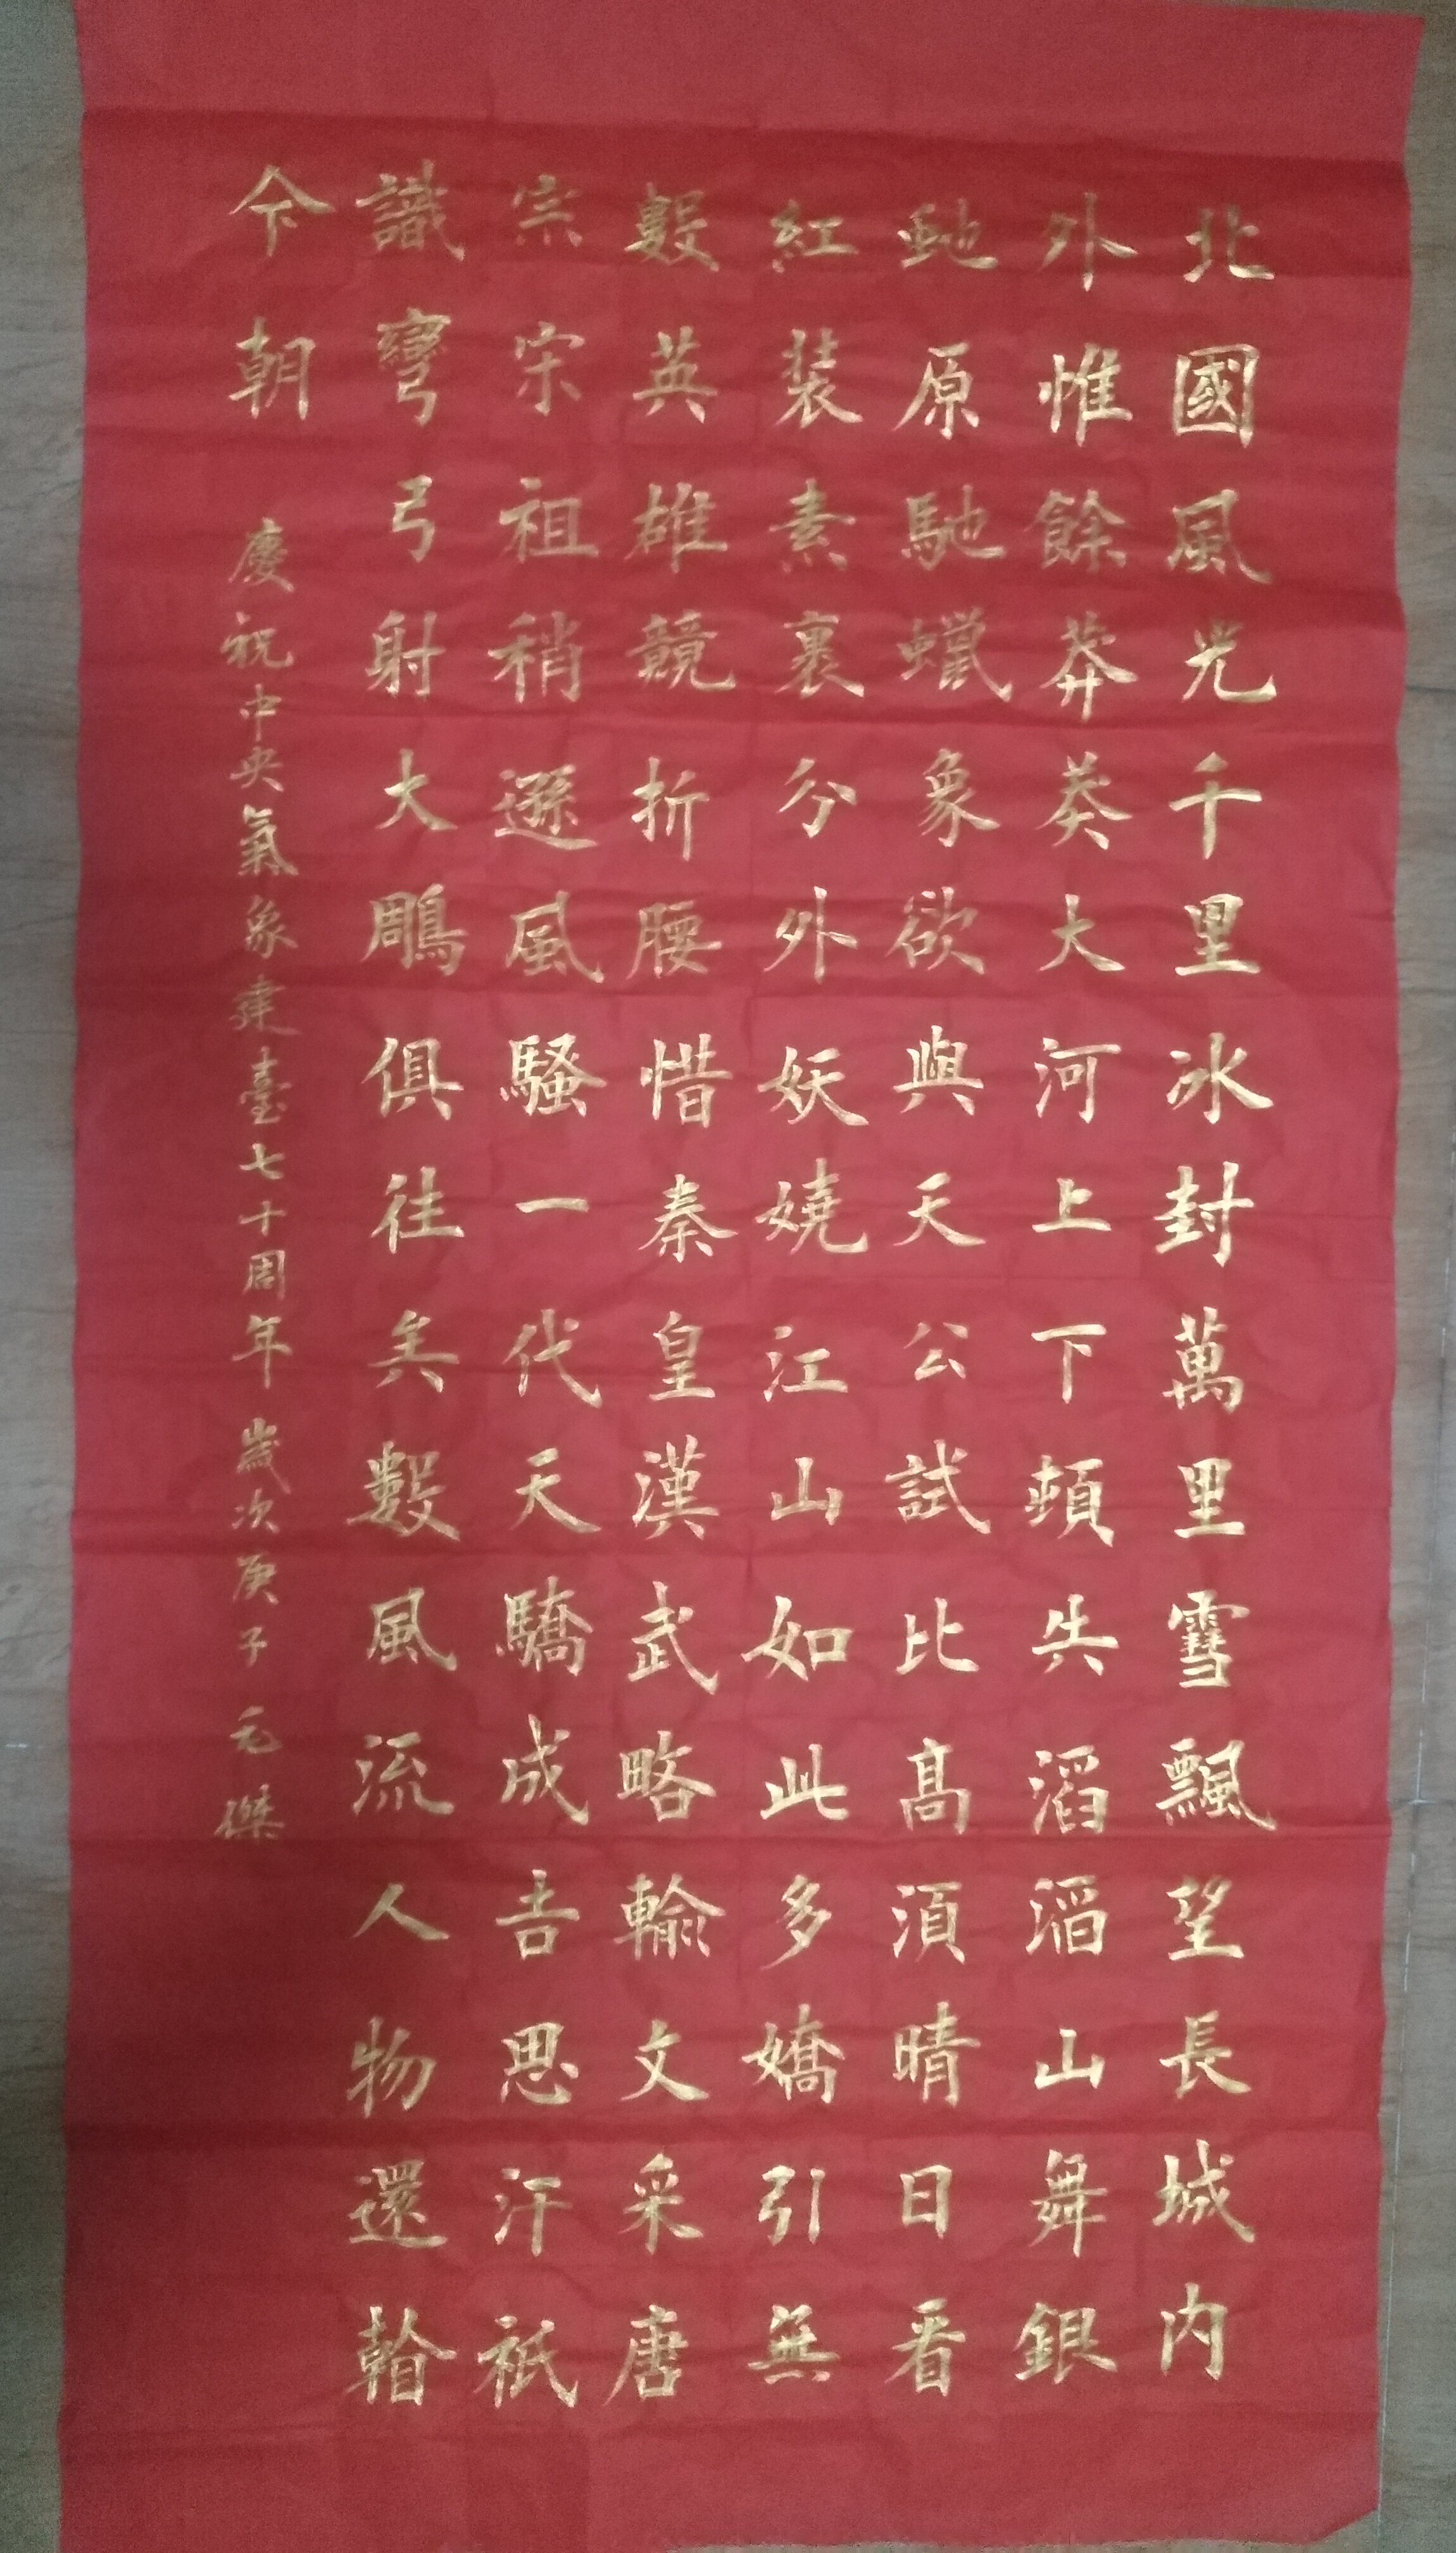 北國風光千里冰封萬里雪飄望長城内
外惟餘莽莽大河上下頓失滔滔山舞銀
虵原馳蠟象欲與天公試比高須晴日看
紅装素裹分外妖嬈江山如此多嬌引無
數英雄競折腰惜秦皇漢武略輸文采唐
宗宋祖稍遜風騷一代天驕成吉思汗衹
識彎弓射大鵰俱往矣數風流人物還
今朝
慶祝中央氣象建臺七十周年 歲次庚子 元傑